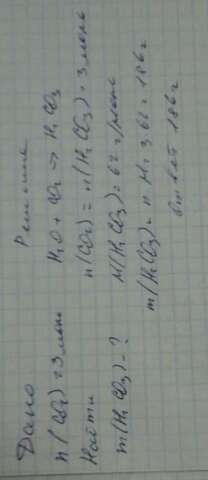 Дано
n(CO₂)=3 моль
Найти
m(H₂CO₃)-?
Решение
H₂O + CO₂ → H₂CO₃
n(CO₂) = n(H₂CO₃) = 3 моль
M(H₂CO₃) = 62 г/моль
m(H₂CO₃) = n · M = 3 · 62 = 186 г
ответ 186 г